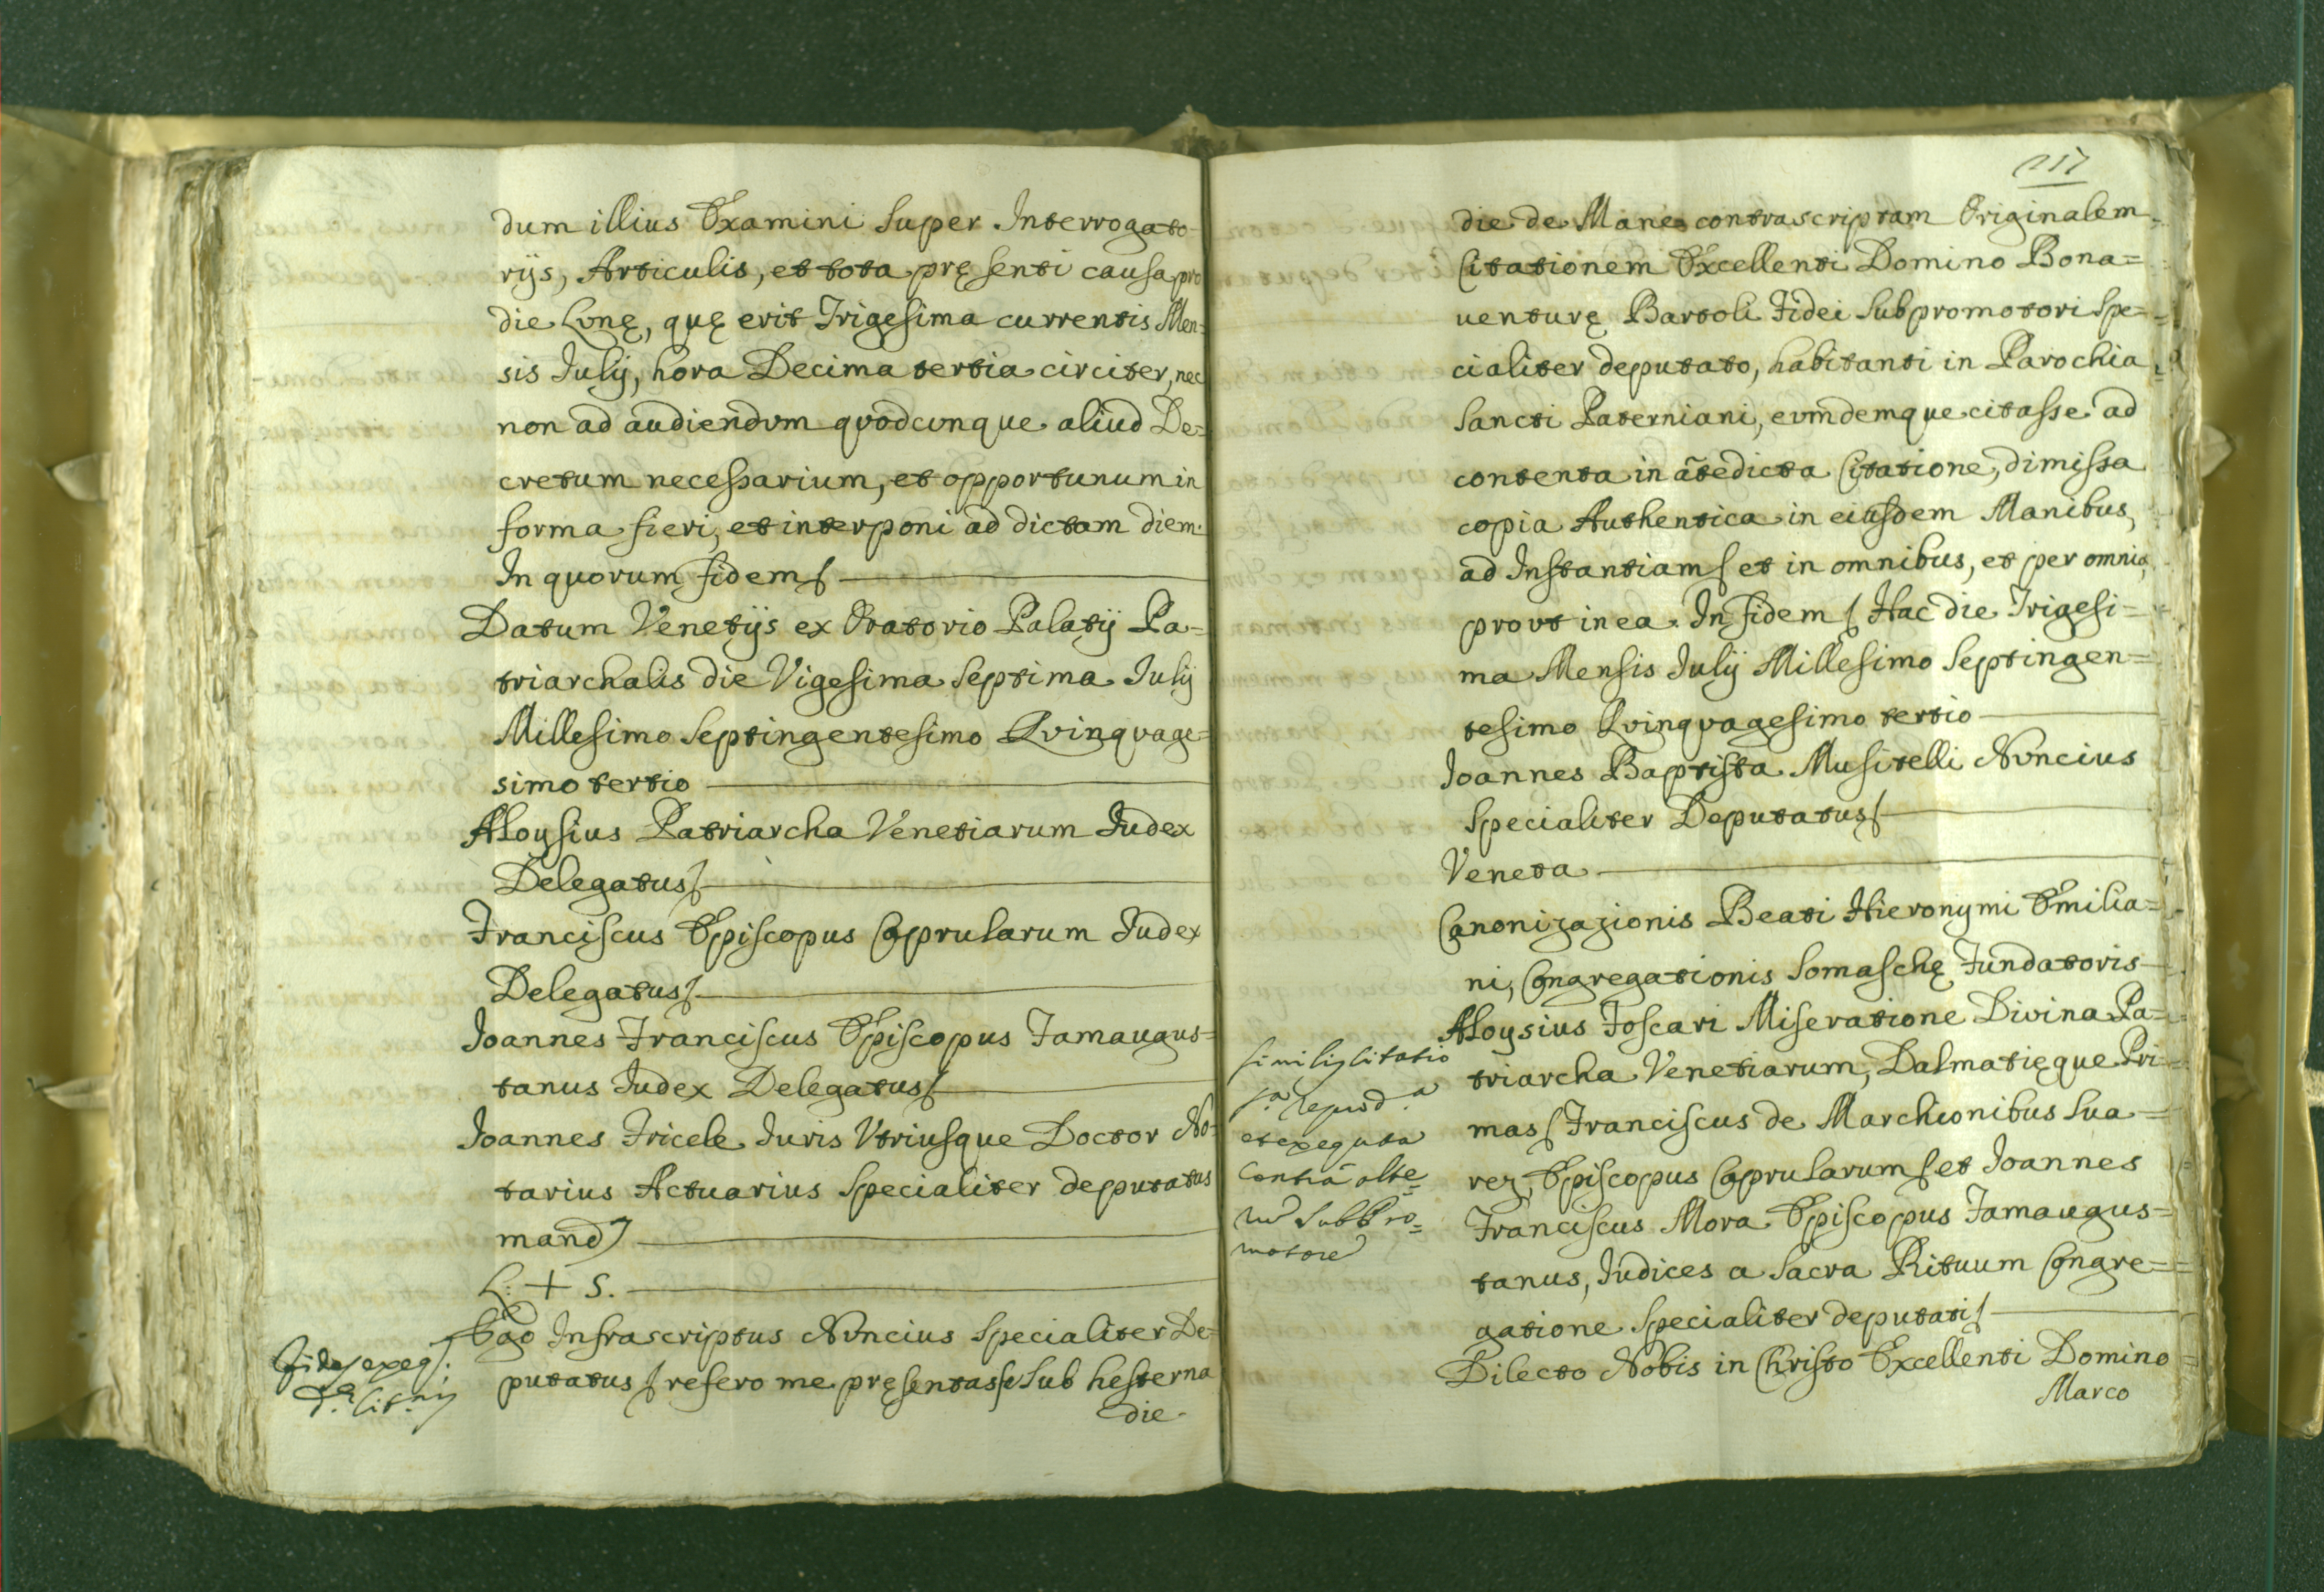 dum illius Examini super Interrogato-
rijs, Articulis, et tota pręsenti causa pro
die Lunę, quę erit Trigesima currentis Men-
sis Julij, hora Decima tertia circiter, nec
non ad audiendum quodcunque aliud De=
cretum necessarium, et opportunum in
forma fieri, et interponi ad dictam diem.
In quorum fidem
Datum Venetijs ex Oratorio Palatij Pa-
triarchalis die Vigesima Septima Julij
Millesimo Septingentesimo Quinquage=
simo tertio
Aloysius Patriarcha Venetiarum Judex
Delegatus
Franciscus Episcopus Caprularum Judex
Delegatus
Joannes Franciscus Episcopus Famaugus=
tanus Judex Delegatus
Joannes Fricele Juris Vtriusque Doctor No-
tarius Actuarius Specialiter deputatus
mand
L. + S.
Ego Infrascriptus Nuncius Specialiter De=
putatus refero me pręsentasse sub hesterna
die
117
die de Mane contrascriptam Originalem
Citationem Excellenti Domino Bona=
uenturę Bartoli Fidei Subpromotori Spe=
cialiter deputato, habitanti in Parochia
Sancti Paterniani, eumdemque citasse ad
contenta in ãtedicta Citatione, dimissa
copia Authentica in eiusdem Manibus,
ad Instantiam et in omnibus, et per omnia,
prout in ea. In fidem Hac die Trigesi=
ma Mensis Julij Millesimo Septingen=
tesimo Quinquagesimo tertio
Joannes Baptista Musitelli Nuncius
Specialiter Deputatus
Veneta
Canonizazionis Beati Hieronymi Emilia=
ni, Congregationis Somaschę Fundatoris
similis Citatio
et exequta
Contra alte=
motore
Aloysius Foscari Miseratione Divina Pa=
triarcha Venetiarum, Dalmatięque Pri=
mas Franciscus de Marchionibus Sua=
rez, Episcopus Caprularum et Joannes
Franciscus Mora Episcopus Famaugus=
tanus, Judices a Sacra Rituum Congre=
gatione Specialiter deputati
Dilecto Nobis in Christo Excellenti Domino
Marco